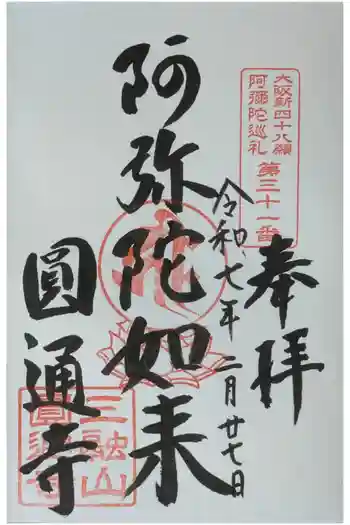 大阪新四十八願
阿彌陀巡礼
第三十一番
奉拝
令和七年二月廿七日
阿弥陀如来
圓通寺
三融山
圓通寺